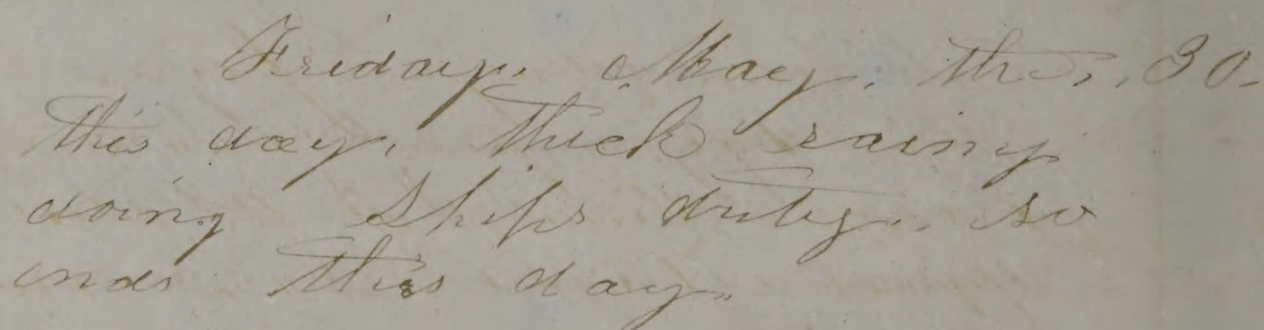 Friday. May. the, 30-
this day, thick rainy
doing Ships duty. so
ends this day.